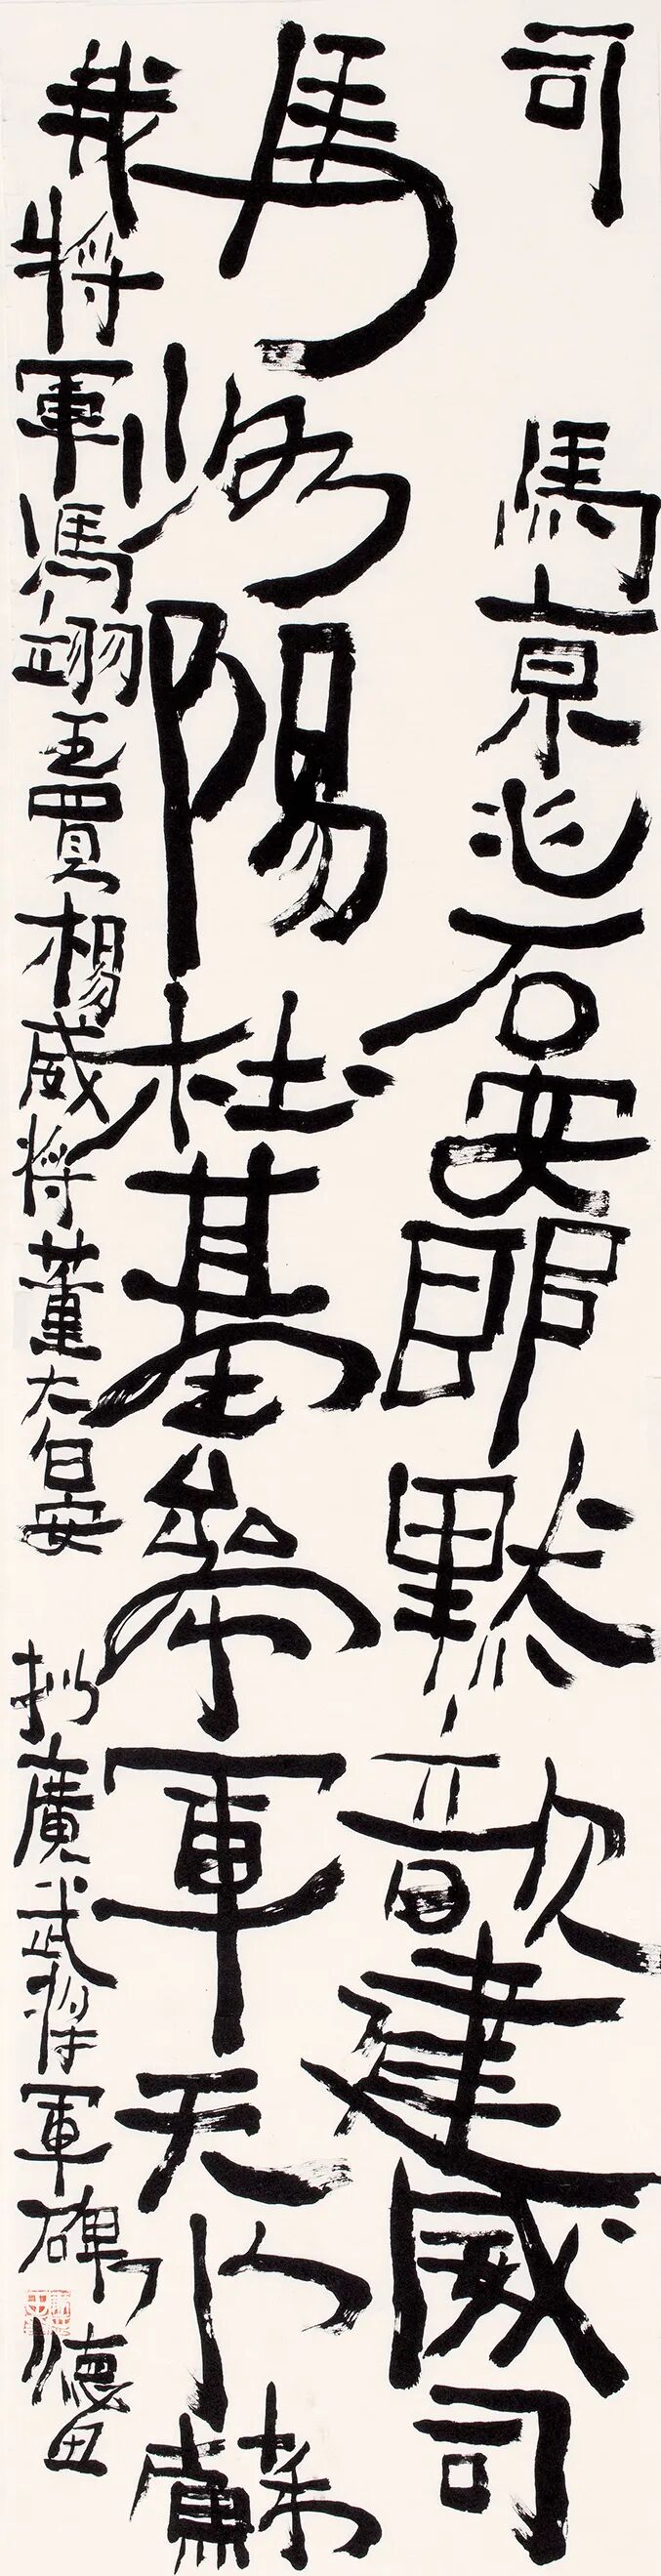 司馬京兆石安即默歆建威司
馬洛陽杜基參軍天水蘇
我將軍馮翊王買楊威將董大白安 抄廣武將軍碑 德丑